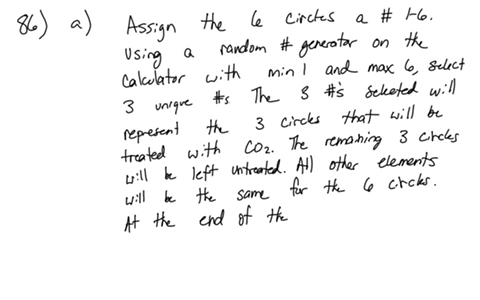 86) a) Assign the 6 circles a # 1-6.
Using a random # generator on the
calculator with min 1 and max 6, select
3 unique #s The 3 #'s selected will
represent the 3 circles that will be
treated with CO2. The remaining 3 circles
will be left untreated. All other elements
will be the same for the 6 circles.
At the end of the